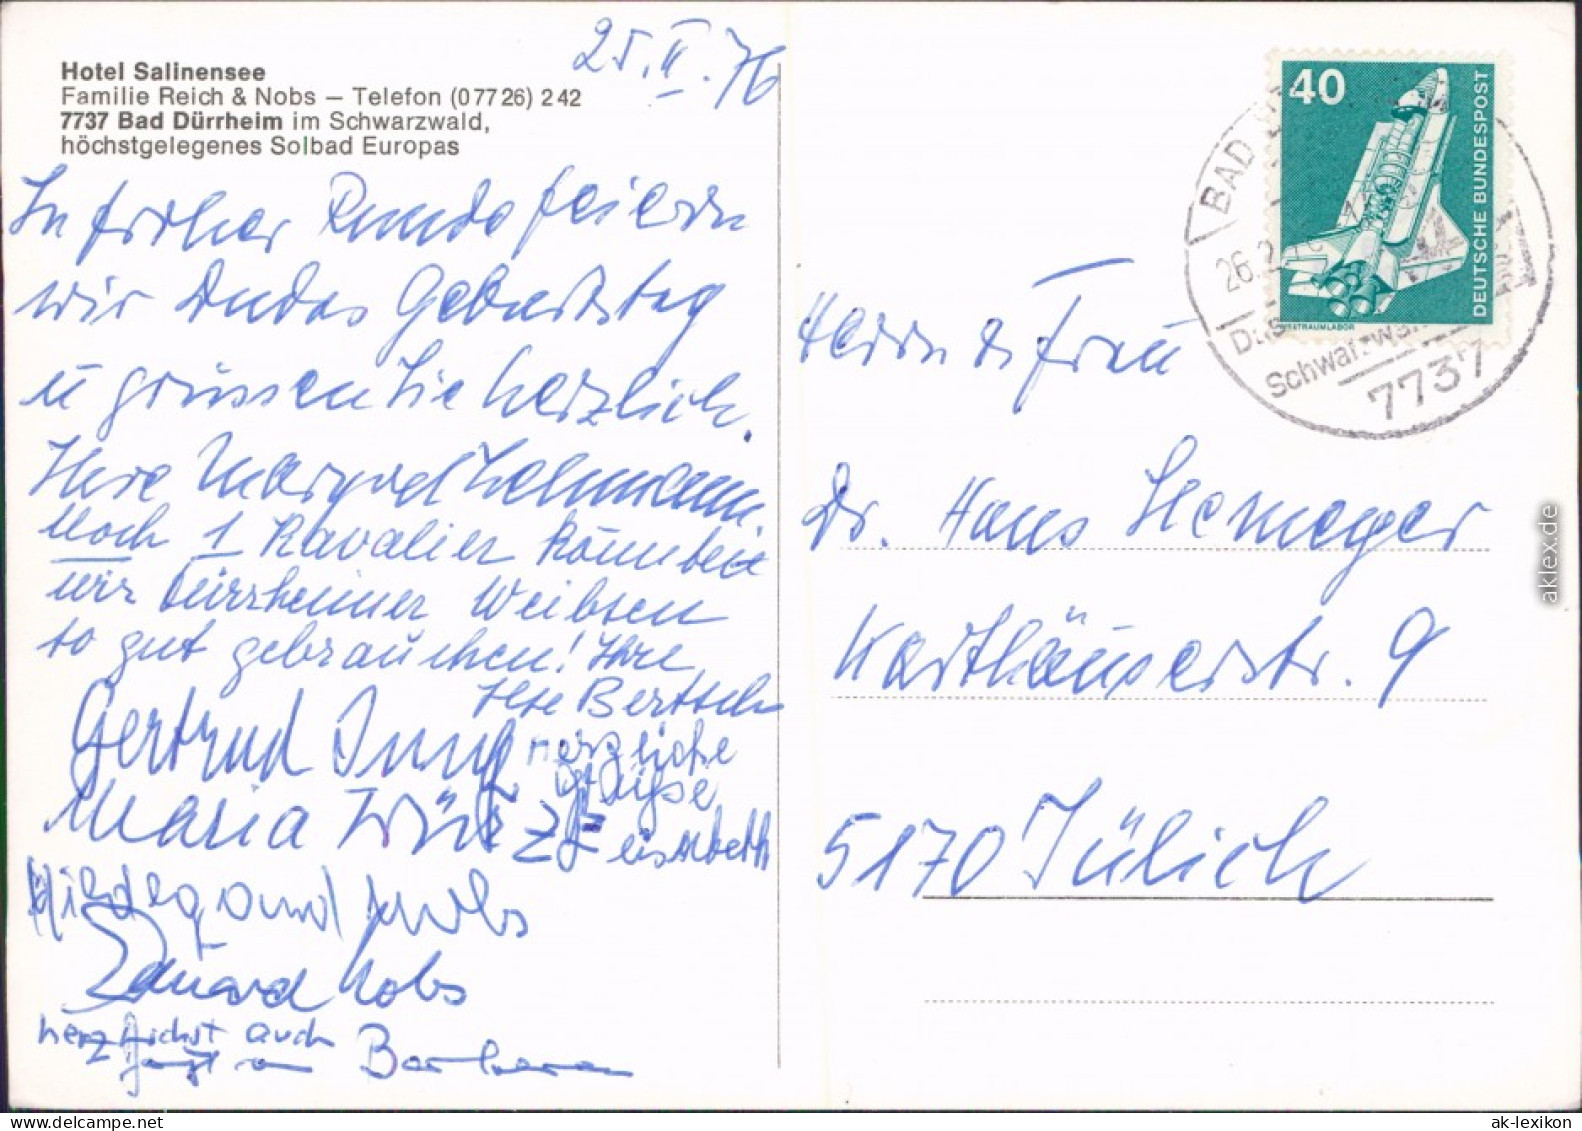 Hotel Salinensee
Familie Reich & Nobs – Telefon (07726) 242
7737 Bad Dürrheim im Schwarzwald,
höchstgelegenes Solbad Europas
25.II.76
In froher Runde feiern
wir Geburtstag
u grüssen Sie herzlich.
Ihre Margret Lehmann.
Noch 1 Kavalier könnten
wir Dürrheimer Weibsen
so gut gebrauchen! Ihre
Ilse Bertsch
Gertrud Jung
Herzliche
Grüße
Maria Würz
Elisabeth
Hildegard Nobs
Eduard Nobs
herzlichst auch
Barbara
40
DEUTSCHE BUNDESPOST
WELTRAUMLABOR
BAD
26.2
Schwarzwald
7737
Herrn & Frau
Dr. Hans Stemeyer
Karthäuserstr. 9
5170 Jülich
aklex.de
ak-lexikon